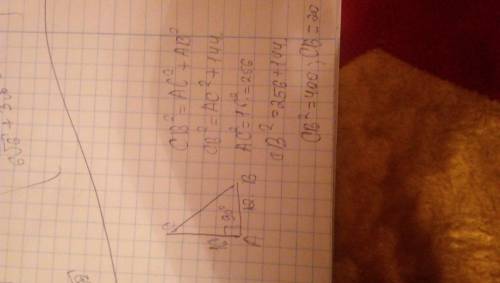 CB² = AC² + AB²
CB² = AC² + 144
AC² = 16² = 256
CB² = 256 + 144
CB² = 400; CB = 20
C
16
90°
A
12
B